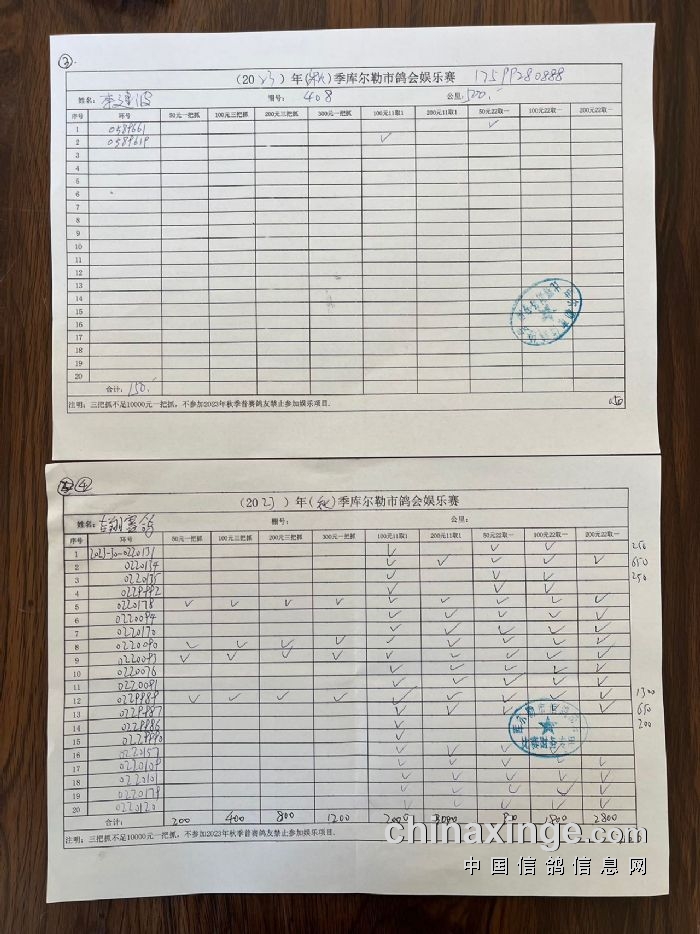 ③
(2023)年(秋)季库尔勒市鸽会娱乐赛 17599280888
姓名: 李建波 棚号: 408 公里: 500.
序号 环号 50元一把抓 100元三把抓 200元三把抓 300元一把抓 100元11取1 200元11取1 50元22取一 100元22取一 200元22取一
1 0589661 ✓
2 0589619 ✓
3
4
5
6
7
8
9
10
11
12
13
14
15
16
17
18
19
20
合计: 150.
注明:三把抓不足10000元一把抓,不参加2023年秋季首赛鸽友禁止参加娱乐项目.
150
④
(2023)年(秋)季库尔勒市鸽会娱乐赛
姓名: 吉翔赛鸽 棚号: 公里:
序号 环号 50元一把抓 100元三把抓 200元三把抓 300元一把抓 100元11取1 200元11取1 50元22取一 100元22取一 200元22取一
1 2023-30-0220131 ✓ ✓ ✓ 250
2 0220134 ✓ ✓ ✓ ✓ ✓ 650
3 0220135 ✓ ✓ ✓ 250
4 0229992 ✓ ✓ ✓
5 0220178 ✓ ✓ ✓ ✓ ✓ ✓ ✓ ✓ ✓
6 0220094 ✓ ✓ ✓ ✓ ✓
7 0220170 ✓ ✓ ✓ ✓ ✓
8 0220090 ✓ ✓ ✓ ✓ ✓ ✓ ✓ ✓ ✓
9 0220093 ✓ ✓ ✓ ✓ ✓ ✓ ✓ ✓ ✓
10 0220076 ✓ ✓ ✓ ✓ ✓
11 0220091 ✓ ✓ ✓ ✓ ✓
12 0229988 ✓ ✓ ✓ ✓ ✓ ✓ ✓ ✓ ✓ 1300
13 0229987 ✓ ✓ ✓ ✓ ✓ 650
14 0229986 ✓ 200
15 0229990 ✓
16 0220157 ✓ ✓ ✓
17 0220109 ✓ ✓ ✓ ✓ ✓
18 0220101 ✓ ✓ ✓ ✓ ✓
19 0220179 ✓ ✓ ✓ ✓ ✓
20 0220120 ✓ ✓ ✓ ✓ ✓
合计: 200 400 800 1200 2000 1800 2800
注明:三把抓不足10000元一把抓,不参加2023年秋季首赛鸽友禁止参加娱乐项目.
chinaxinge.com
中国信鸽信息网